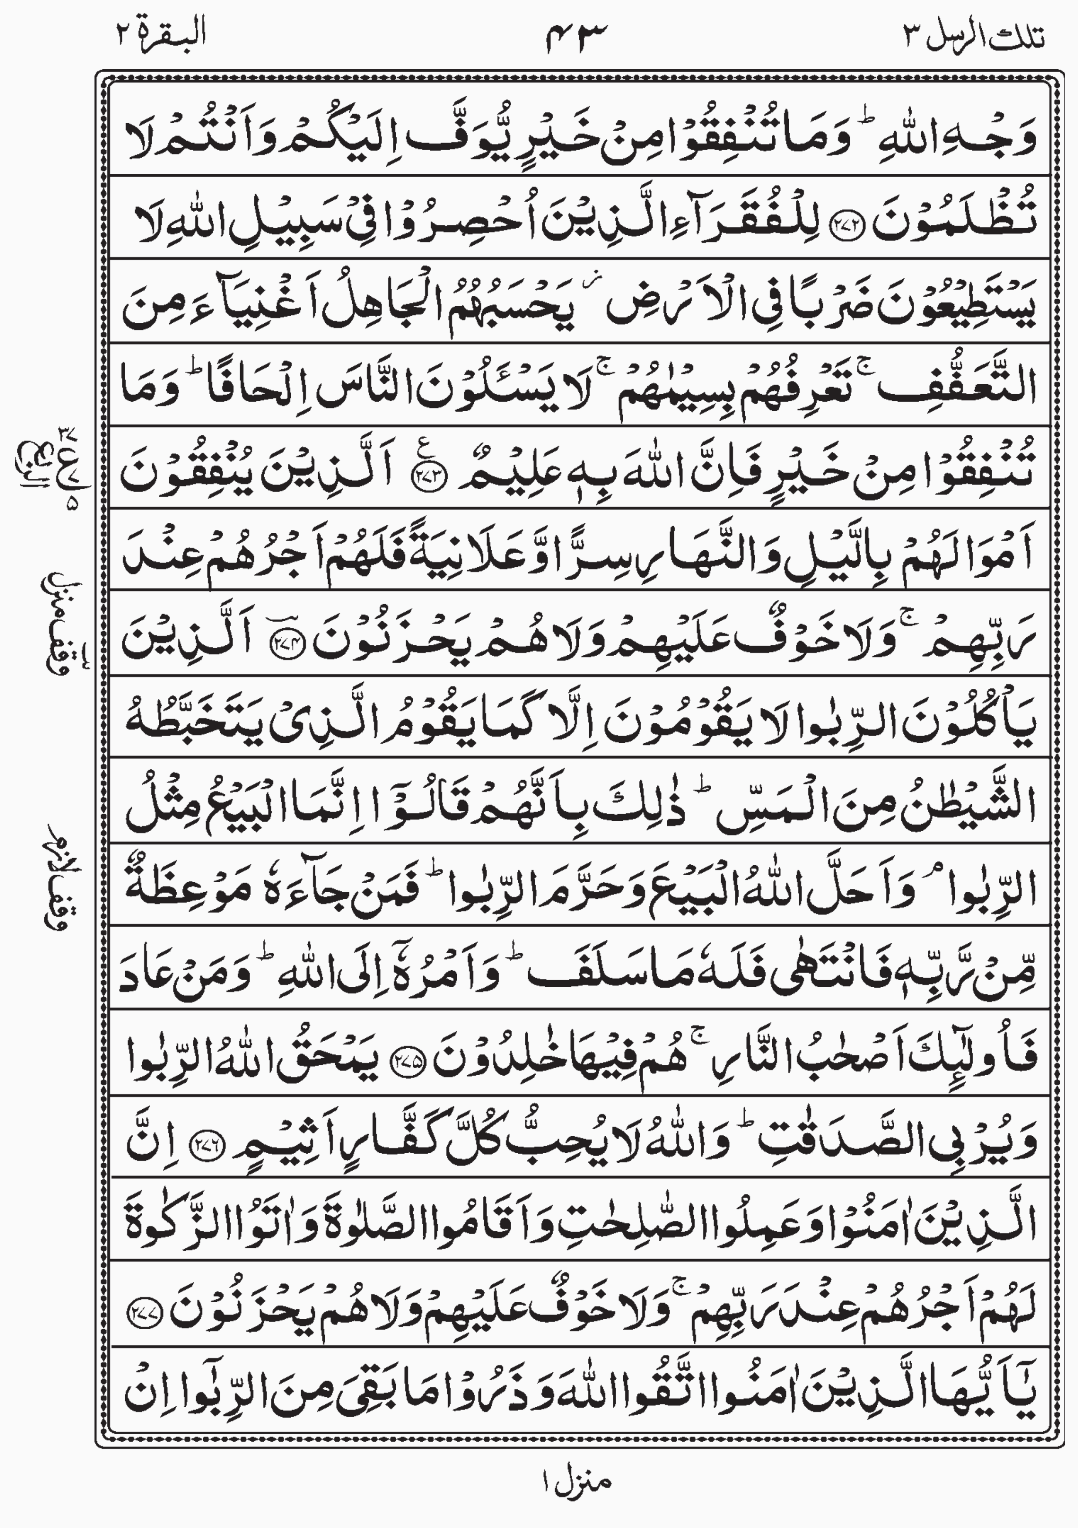 تلك الرسل ٣
۴٣
البقرة ٢
وَجْهِ اللّٰهِ ؕ وَمَا تُنْفِقُوْا مِنْ خَيْرٍ يُّوَفَّ اِلَيْكُمْ وَاَنْتُمْ لَا
تُظْلَمُوْنَ ﴿۲۷۲﴾ لِلْفُقَرَآءِ الَّذِيْنَ اُحْصِرُوْا فِيْ سَبِيْلِ اللّٰهِ لَا
يَسْتَطِيْعُوْنَ ضَرْبًا فِى الْاَرْضِ ؗ يَحْسَبُهُمُ الْجَاهِلُ اَغْنِيَآءَ مِنَ
التَّعَفُّفِ ۚ تَعْرِفُهُمْ بِسِيْمٰهُمْ ۚ لَا يَسْـَٔلُوْنَ النَّاسَ اِلْحَافًا ؕ وَمَا
تُنْفِقُوْا مِنْ خَيْرٍ فَاِنَّ اللّٰهَ بِهٖ عَلِيْمٌ ﴿۲۷۳﴾ ع اَلَّذِيْنَ يُنْفِقُوْنَ
اَمْوَالَهُمْ بِالَّيْلِ وَالنَّهَارِ سِرًّا وَّعَلَانِيَةً فَلَهُمْ اَجْرُهُمْ عِنْدَ
رَبِّهِمْ ۚ وَلَا خَوْفٌ عَلَيْهِمْ وَلَا هُمْ يَحْزَنُوْنَ ﴿۲۷۴﴾ اَلَّذِيْنَ
يَاْكُلُوْنَ الرِّبٰوا لَا يَقُوْمُوْنَ اِلَّا كَمَا يَقُوْمُ الَّذِىْ يَتَخَبَّطُهُ
الشَّيْطٰنُ مِنَ الْمَسِّ ؕ ذٰلِكَ بِاَنَّهُمْ قَالُوْٓا اِنَّمَا الْبَيْعُ مِثْلُ
الرِّبٰوا ۘ وَاَحَلَّ اللّٰهُ الْبَيْعَ وَحَرَّمَ الرِّبٰوا ؕ فَمَنْ جَآءَهٗ مَوْعِظَةٌ
مِّنْ رَّبِّهٖ فَانْتَهٰى فَلَهٗ مَا سَلَفَ ؕ وَاَمْرُهٗٓ اِلَى اللّٰهِ ؕ وَمَنْ عَادَ
فَاُولٰٓئِكَ اَصْحٰبُ النَّارِ ۚ هُمْ فِيْهَا خٰلِدُوْنَ ﴿۲۷۵﴾ يَمْحَقُ اللّٰهُ الرِّبٰوا
وَيُرْبِى الصَّدَقٰتِ ؕ وَاللّٰهُ لَا يُحِبُّ كُلَّ كَفَّارٍ اَثِيْمٍ ﴿۲۷۶﴾ اِنَّ
الَّذِيْنَ اٰمَنُوْا وَعَمِلُوا الصّٰلِحٰتِ وَاَقَامُوا الصَّلٰوةَ وَاٰتَوُا الزَّكٰوةَ
لَهُمْ اَجْرُهُمْ عِنْدَ رَبِّهِمْ ۚ وَلَا خَوْفٌ عَلَيْهِمْ وَلَا هُمْ يَحْزَنُوْنَ ﴿۲۷۷﴾
يٰٓاَيُّهَا الَّذِيْنَ اٰمَنُوا اتَّقُوا اللّٰهَ وَذَرُوْا مَا بَقِىَ مِنَ الرِّبٰٓوا اِنْ
٣٧
ع ٧
٥
الربع
وقف منزل
وقف لازم
منزل ١